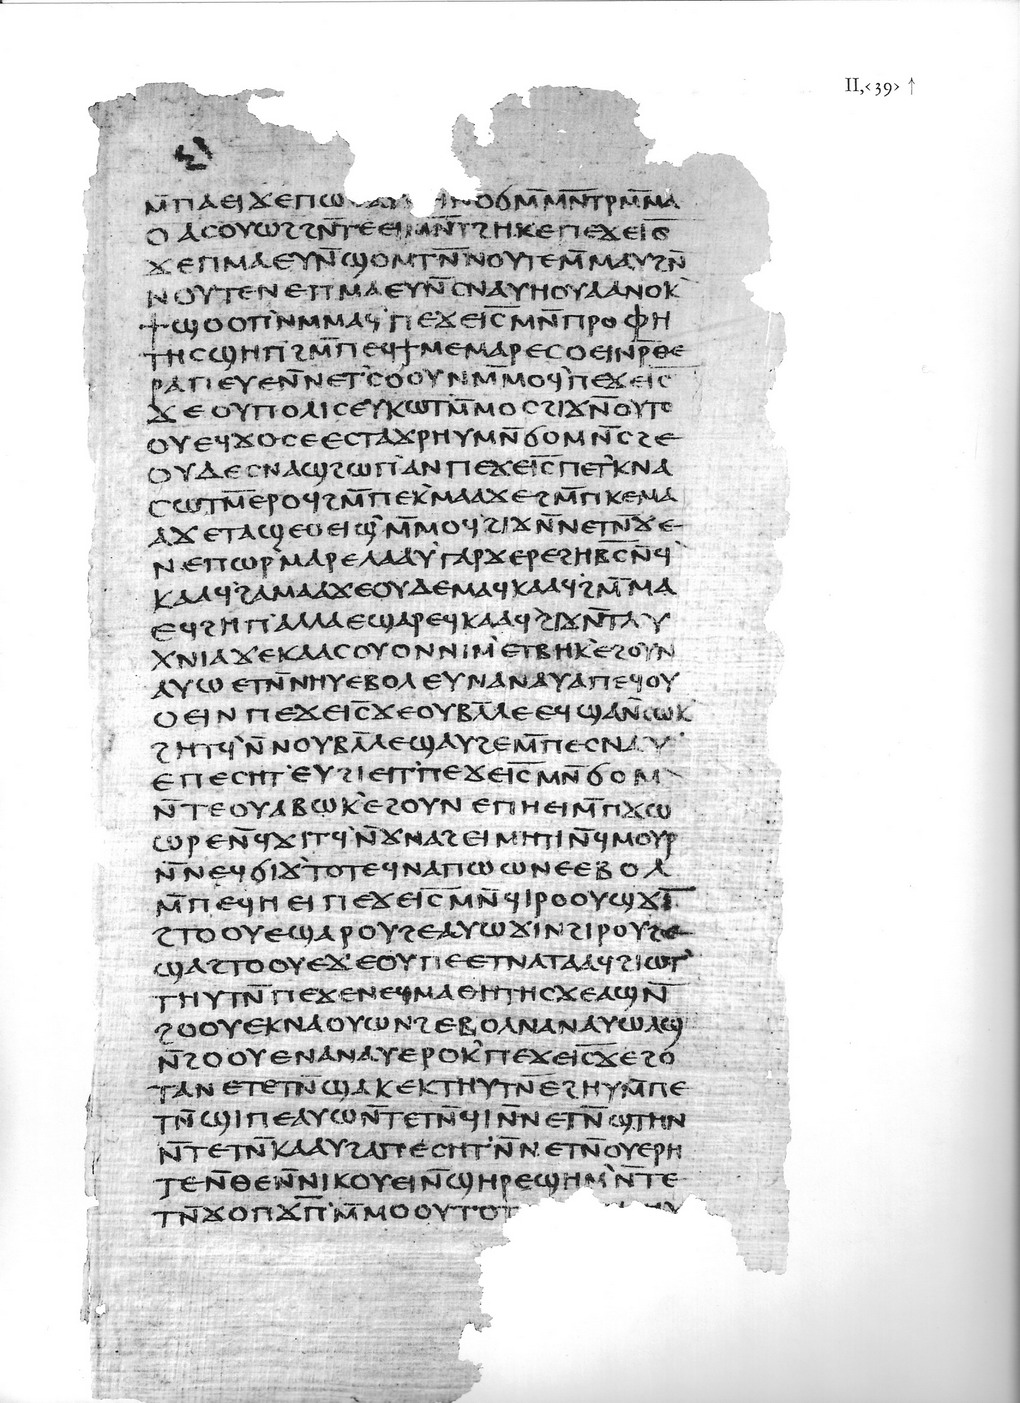 II,‹39› ↑
ⲙ̄ⲡⲁⲉⲓ ϫⲉ ⲡⲱ ⲛⲟϭ ⲙ̄ⲙⲛ̄ⲧⲣⲙ̄ⲙⲁ
ⲟ ⲁⲥⲟⲩⲱϩ ϩⲛ̄ ⲧⲉⲉⲓⲙⲛ̄ⲧϩⲏⲕⲉ ⲡⲉϫⲉ ⲓ̄ⲥ̄
ϫⲉ ⲡⲙⲁ ⲉⲩⲛ̄ ϣⲟⲙⲧ ⲛ̄ⲛⲟⲩⲧⲉ ⲙ̄ⲙⲁⲩ ϩⲛ̄
ⲛⲟⲩⲧⲉ ⲛⲉ ⲡⲙⲁ ⲉⲩⲛ̄ ⲥⲛⲁⲩ ⲏ ⲟⲩⲁ ⲁⲛⲟⲕ
ϯϣⲟⲟⲡ ⲛⲙⲙⲁϥ ⲡⲉϫⲉ ⲓ̄ⲥ̄ ⲙⲛ̄ ⲡⲣⲟⲫⲏ
ⲧⲏⲥ ϣⲏⲡ ϩⲙ̄ ⲡⲉϥϯⲙⲉ ⲙⲁⲣⲉ ⲥⲟⲉⲓⲛ ⲣ̄ⲑⲉ
ⲣⲁⲡⲉⲩⲉ ⲛ̄ⲛⲉⲧⲥⲟⲟⲩⲛ ⲙ̄ⲙⲟϥ ⲡⲉϫⲉ ⲓ̄ⲥ̄
ϫⲉ ⲟⲩⲡⲟⲗⲓⲥ ⲉⲩⲕⲱⲧ ⲙ̄ⲙⲟⲥ ϩⲓϫⲛ̄ ⲟⲩⲧⲟ
ⲟⲩ ⲉϥϫⲟⲥⲉ ⲉⲥⲧⲁϫⲣⲏⲩ ⲙⲛ̄ ϭⲟⲙ ⲛ̄ⲥϩⲉ
ⲟⲩⲇⲉ ⲥⲛⲁϣϩⲱⲡ ⲁⲛ ⲡⲉϫⲉ ⲓ̄ⲥ̄ ⲡⲉⲧⲕⲛⲁ
ⲥⲱⲧⲙ̄ ⲉⲣⲟϥ ϩⲙ̄ ⲡⲉⲕⲙⲁⲁϫⲉ ϩⲙ̄ ⲡⲕⲉⲙⲁ
ⲁϫⲉ ⲧⲁϣⲉⲟⲉⲓϣ ⲙ̄ⲙⲟϥ ϩⲓϫⲛ̄ ⲛⲉⲧⲛ̄ϫⲉ
ⲛⲉⲡⲱⲣ ⲙⲁⲣⲉⲗⲁⲁⲩ ⲅⲁⲣ ϫⲉⲣⲉ ϩⲏⲃⲥ̄ ⲛ̄ϥ
ⲕⲁⲁϥ ϩⲁ ⲙⲁⲁϫⲉ ⲟⲩⲇⲉ ⲙⲁϥⲕⲁⲁϥ ϩⲙ̄ ⲙⲁ
ⲉϥϩⲏⲡ ⲁⲗⲗⲁ ⲉϣⲁⲣⲉϥⲕⲁⲁϥ ϩⲓϫⲛ̄ ⲧⲗⲩ
ⲭⲛⲓⲁ ϫⲉⲕⲁⲁⲥ ⲟⲩⲟⲛ ⲛⲓⲙ ⲉⲧⲃⲏⲕ ⲉϩⲟⲩⲛ
ⲁⲩⲱ ⲉⲧⲛ̄ⲛⲏⲩ ⲉⲃⲟⲗ ⲉⲩⲛⲁⲛⲁⲩ ⲁⲡⲉϥⲟⲩ
ⲟⲉⲓⲛ ⲡⲉϫⲉ ⲓ̄ⲥ̄ ϫⲉ ⲟⲩⲃⲗ̄ⲗⲉ ⲉϥϣⲁⲛⲥⲱⲕ
ϩⲏⲧϥ ⲛ̄ⲛⲟⲩⲃⲗ̄ⲗⲉ ϣⲁⲩϩⲉ ⲙ̄ⲡⲉⲥⲛⲁⲩ
ⲉⲡⲉⲥⲏⲧ ⲉⲩϩⲓⲉⲓⲧ ⲡⲉϫⲉ ⲓ̄ⲥ̄ ⲙⲛ̄ ϭⲟⲙ
ⲛ̄ⲧⲉ ⲟⲩⲁ ⲃⲱⲕ ⲉϩⲟⲩⲛ ⲉⲡⲏⲉⲓ ⲙ̄ⲡϫⲱ
ⲱⲣⲉ ⲛ̄ϥϫⲓⲧϥ ⲛ̄ϫⲛⲁϩ ⲉⲓ ⲙⲏⲧⲓ ⲛ̄ϥⲙⲟⲩⲣ
ⲛ̄ⲛⲉϥϭⲓϫ ⲧⲟⲧⲉ ϥⲛⲁⲡⲱⲱⲛⲉ ⲉⲃⲟⲗ
ⲙ̄ⲡⲉϥⲏⲉⲓ ⲡⲉϫⲉ ⲓ̄ⲥ̄ ⲙⲛ̄ϥⲓ ⲣⲟⲟⲩϣ ϫⲓⲛ̄
ϩⲧⲟⲟⲩⲉ ϣⲁ ⲣⲟⲩϩⲉ ⲁⲩⲱ ϫⲓⲛ ϩⲓⲣⲟⲩϩⲉ
ϣⲁ ϩⲧⲟⲟⲩⲉ ϫⲉ ⲟⲩ ⲡⲉ ⲉⲧⲛⲁⲧⲁⲁϥ ϩⲓⲱⲧ
ⲧⲏⲩⲧⲛ̄ ⲡⲉϫⲉ ⲛⲉϥⲙⲁⲑⲏⲧⲏⲥ ϫⲉ ⲁϣ ⲛ̄
ϩⲟⲟⲩ ⲉⲕⲛⲁⲟⲩⲱⲛϩ ⲉⲃⲟⲗ ⲛⲁⲛ ⲁⲩⲱ ⲁϣ
ⲛ̄ϩⲟⲟⲩ ⲉⲛⲁⲛⲁⲩ ⲉⲣⲟⲕ ⲡⲉϫⲉ ⲓ̄ⲥ̄ ϫⲉ ϩⲟ
ⲧⲁⲛ ⲉⲧⲉⲧⲛ̄ϣⲁⲕⲉⲕ ⲧⲏⲩⲧⲛ̄ ⲉϩⲏⲩ ⲙ̄ⲡⲉ
ⲧⲛ̄ϣⲓⲡⲉ ⲁⲩⲱ ⲛ̄ⲧⲉⲧⲛ̄ϥⲓ ⲛ̄ⲛⲉⲧⲛ̄ϣⲧⲏⲛ
ⲛ̄ⲧⲉⲧⲛ̄ⲕⲁⲁⲩ ϩⲁ ⲡⲉⲥⲏⲧ ⲛ̄ⲛⲉⲧⲛ̄ⲟⲩⲉⲣⲏ
ⲧⲉ ⲛ̄ⲑⲉ ⲛ̄ⲛⲓⲕⲟⲩⲉⲓ ⲛ̄ϣⲏⲣⲉ ϣⲏⲙ ⲛ̄ⲧⲉ
ⲧⲛ̄ϫⲟⲡϫⲡ̄ ⲙ̄ⲙⲟⲟⲩ ⲧⲟⲧ